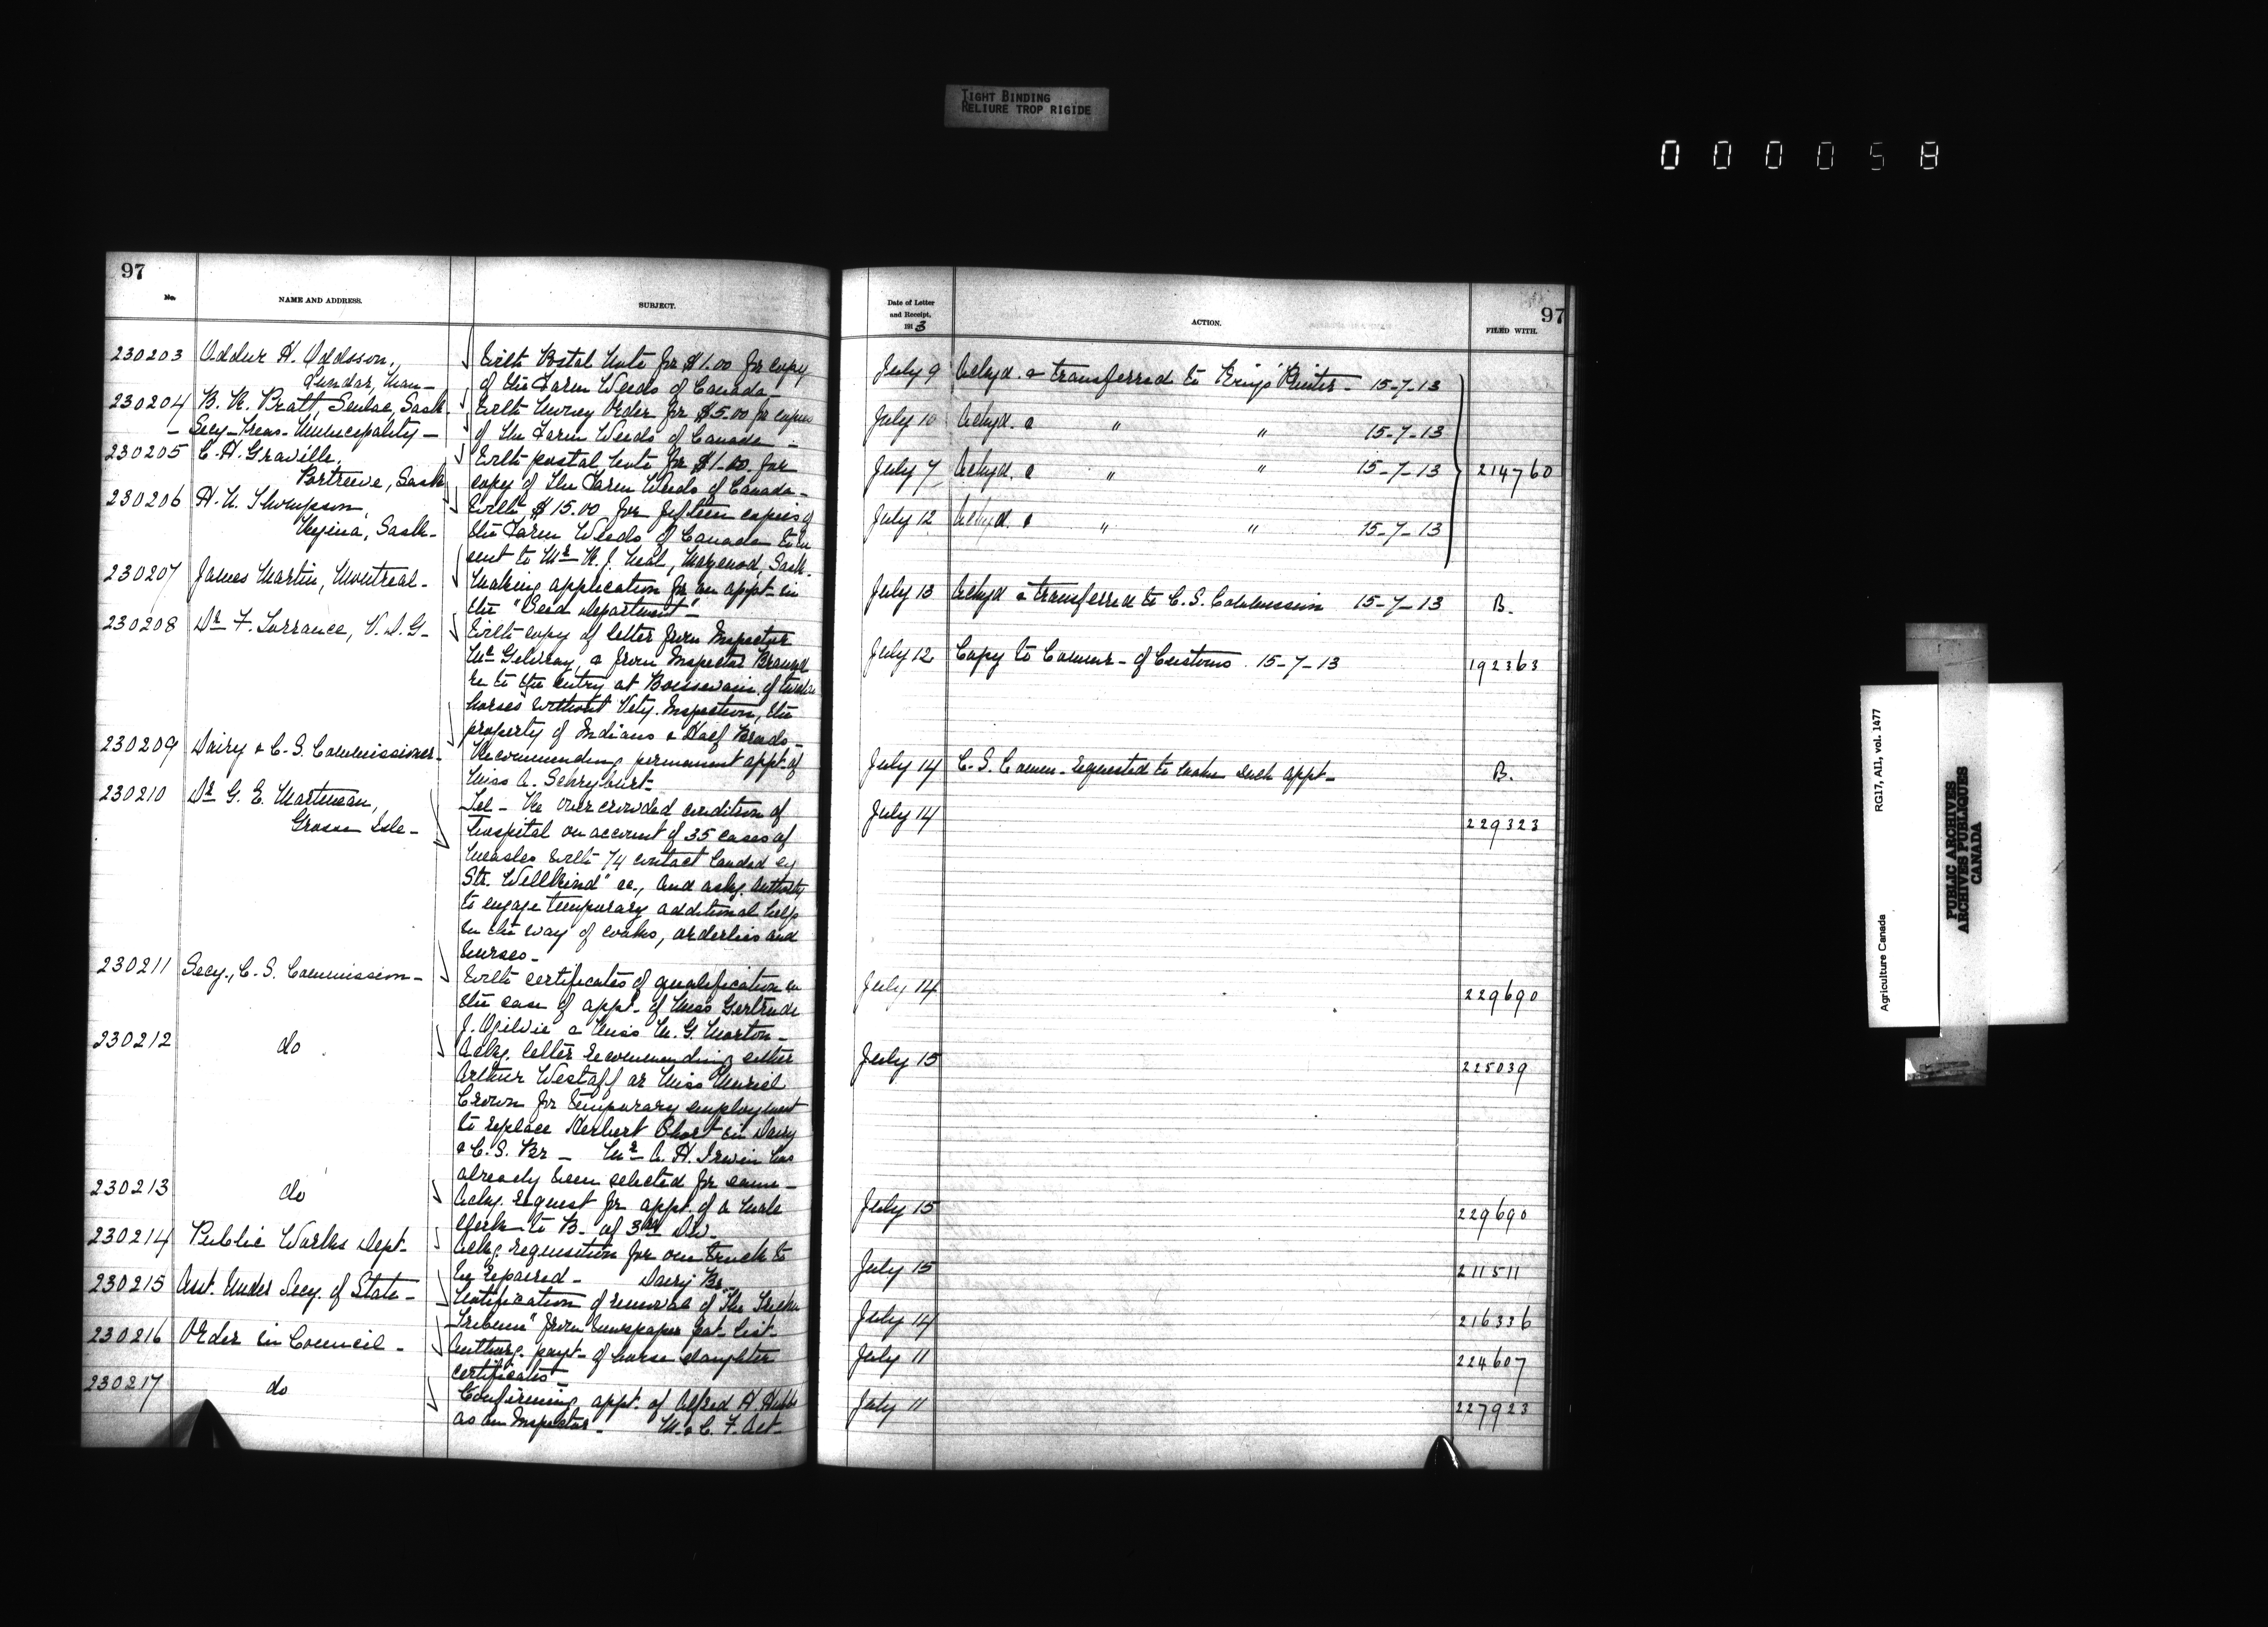 TIGHT BINDING
RELIURE TROP RIGIDE
000058
97
No.
NAME AND ADDRESS.
SUBJECT.
230203 Oddur H. Oddsson,
Lundar, Man-
With Postal Note for $1.00 for copy
of the Farm Weeds of Canada-
230204 B. H. Pratt, Senlac, Sask-
- Secy-Treas- Municipality-
With Money Order for $5.00 for copies
of the Farm Weeds of Canada -
230205 C. H. Graville,
Portreeve, Sask
With postal note for $1.00 for
copy of the Farm Weeds of Canada-
230206 H. N. Thompson,
Regina, Sask-
With $15.00 for fifteen copies of
the Farm Weeds of Canada to be
sent to Mr J. Neal, Mazenod, Sask.
230207 James Martin, Montreal-
Making application for an appt- in
the "Seed Department"-
230208 Dr F. Torrance, V. D. G-
With copy of letter from Inspector
McGilvray, & from Inspector
re to the entry at Boissevain of twelve
horses without Vety. Inspection, the
property of Indians & Half Breeds-
230209 Dairy & C. S. Commissioner-
Recommending permanent appt. of
Miss A.
230210 Dr G. E. Martineau,
Grosse Isle-
Tel- Re over crowded condition of
hospital on account of 35 cases of
measles with 74 contact landed by
Str. ac., and askg. authority
to engage temporary additional help
in the way of cooks, orderlies and
nurses-
230211 Secy., C. S. Commission-
With certificates of qualification in
the case of appt- of Miss Gertrude
J. Ogilvie & Miss M. G. Morton-
230212 do
Ackg. letter recommending either
Arthur Westaff or Miss Muriel
Crown for temporary employment
to replace Herbert Short in Dairy
& C. S. Br - Mr A. H. Irwin has
already been selected for same-
230213 do
Ackg. request for appt. of a male
clerk to B. of 3rd Div.
230214 Public Works Dept-
Ackg. requisition for one truck to
be repaired- Dairy Br-
230215 Asst. Under Secy. of State-
Notification of removal of "The
Tribune" from newspaper Pat. List-
230216 Order in Council-
Authorg. payt- of horse slaughter
certificates-
230217 do
Confirming appt. of Alfred H.
as an Inspector- M. & C. F. Act-
97
Date of Letter
and Receipt,
1913
ACTION.
FILED WITH.
July 9 Ackgd. & transferred to King's Printer- 15-7-13
July 10 Ackgd. & " " 15-7-13
July 7 Ackgd. & " " 15-7-13 214760
July 12 Ackgd. & " " 15-7-13
July 13 Ackgd & transferred to C. S. Commission 15-7-13 B.
July 12 Copy to Commr- of Customs. 15-7-13 192363
July 14 C. S. Commn- requested to make such appt- B.
July 14 229323
July 14 229690
July 15 225039
July 15 229690
July 15 211511
July 14 216336
July 11 224607
July 11 227923
Agriculture Canada RG17, AII, vol. 1477
PUBLIC ARCHIVES
ARCHIVES PUBLIQUES
CANADA